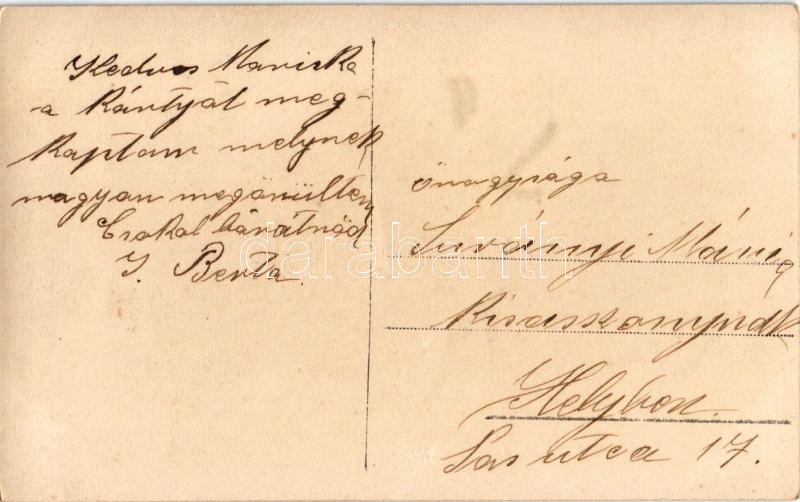 Kedves Mariska
a kártyát meg-
kaptam melynek
nagyon megörültem
Csokol barátnőd
I. Berta.
önagysága
Surányi Mária
kisasszonynak
Helyben.
Sas utca 17.
darabanth